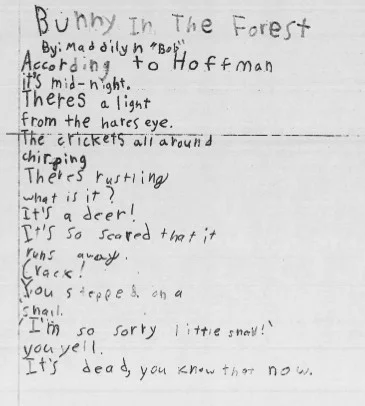 Bunny In The Forest
By: Maddilyn "Bob"
According to Hoffman
it's mid-night.
Theres a light
from the hares eye.
The crickets all around
chirping
Theres rustling
what is it?
It's a deer!
It's so scared that it
runs away.
Crack!
You stepped on a
snail.
"I'm so sorry little snail!"
you yell.
It's dead, you know that now.